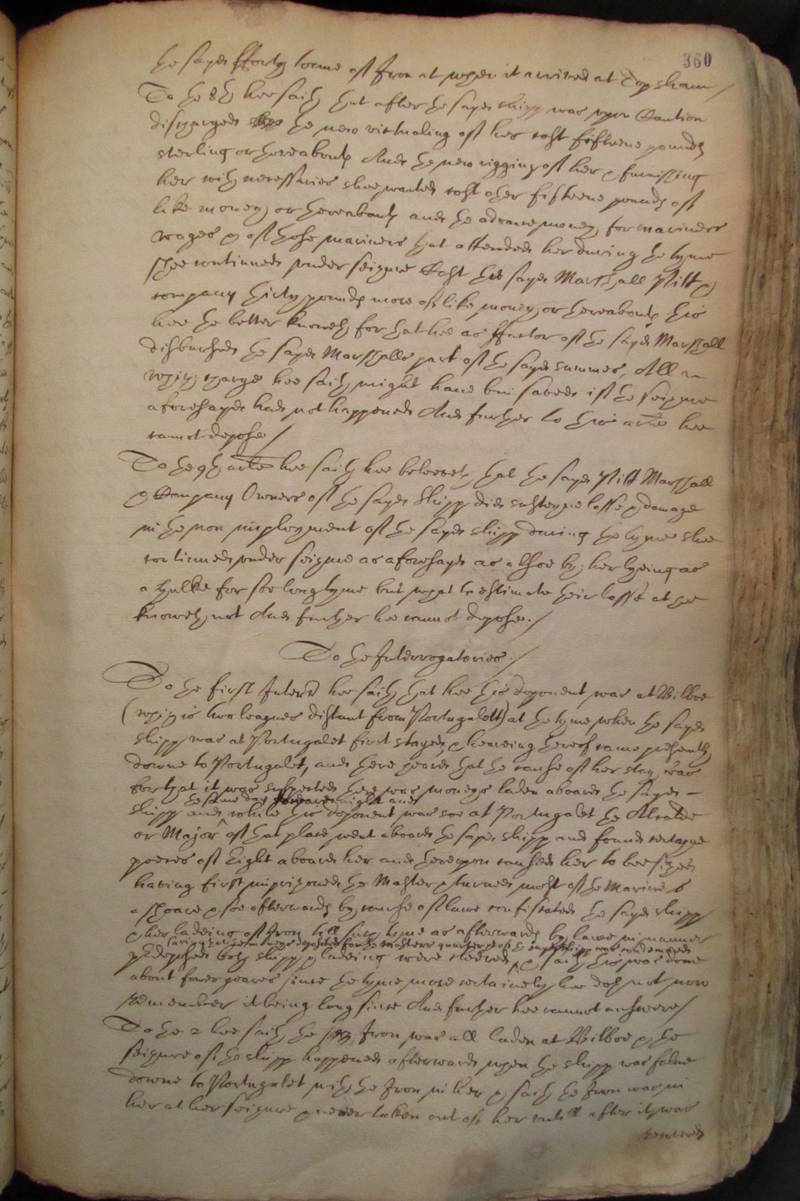 360
the sayd fforty tonne of Iron at when it arrived at Topsham /
To the 8th hee saith that after the sayd shipp was upon Caution
discharged the new victualing of her cost fifteene pounds
sterling or thereabouts And the new rigging of her & furnishing
her with necessaries shee wanted cost other fifteene pounds of
like money or thereabouts and the advance money for mariners
wages & of those mariners that attended her during the tyme
shee continued under seizure Cost the sayd Marshall Pitt &
company thirty pounds more of like money or thereabouts this
hee the better knoweth for that hee as ffactor of the sayd Marshall
disbursed the sayd Marshalls part of the sayd summes, All
which charges hee saith might have bin saved if the seizure
aforesayd had not happened And further to this arte hee
cannot depose /
To the 9th arte hee saith hee beleeveth that the sayd Pitt Marshall
& Company Owners of the sayd shipp did susteyne losse & damage
in the non imployment of the sayd shipp during the tyme shee
continued under seizure as aforesayd as alsoe by her lyeing as
a hulke for soe long tyme but what to estimate their losse at hee
knoweth not And further hee cannot depose. /
To the Interrogatories. /
To the first Interr hee saith that hee this deponent was at Bilboe
(which is two leagues distant from Portugalett) at the tyme when the sayd
shipp was at Portugalet first stayed & heareing thereof came presently
downe to Portugalet, and there heard that the cause of her stay was
for that it was suspected there was moneys laden aboard the sayd
the same day
shipp and while this deponent was soe at Portugalet the Alcalde
or Major of that place went aboard the sayd shipp and found certayne
peeces of Eight aboard her and thereupon caused her to bee seized
having first imprizoned the Master & turned most of the Mariners
a shoare & soe afterwards by course of lawe confiscated the sayd shipp
& her ladeing of Iron till such tyme as afterwards by lawe in manner
predeposed both shipp & ladeing were cleered, & saith this was done
about fower yeares since the tyme more certainely hee doth not now
remember it being long since And further hee cannot answere /
To the 2 hee saith the Iron was all laden at Bilboe & the
seizure of the shipp happened afterwards when the shipp was falne
downe to Portugalet with the Iron in her & saith the Iron was in
her at her seizure & never taken out of her untill after it was